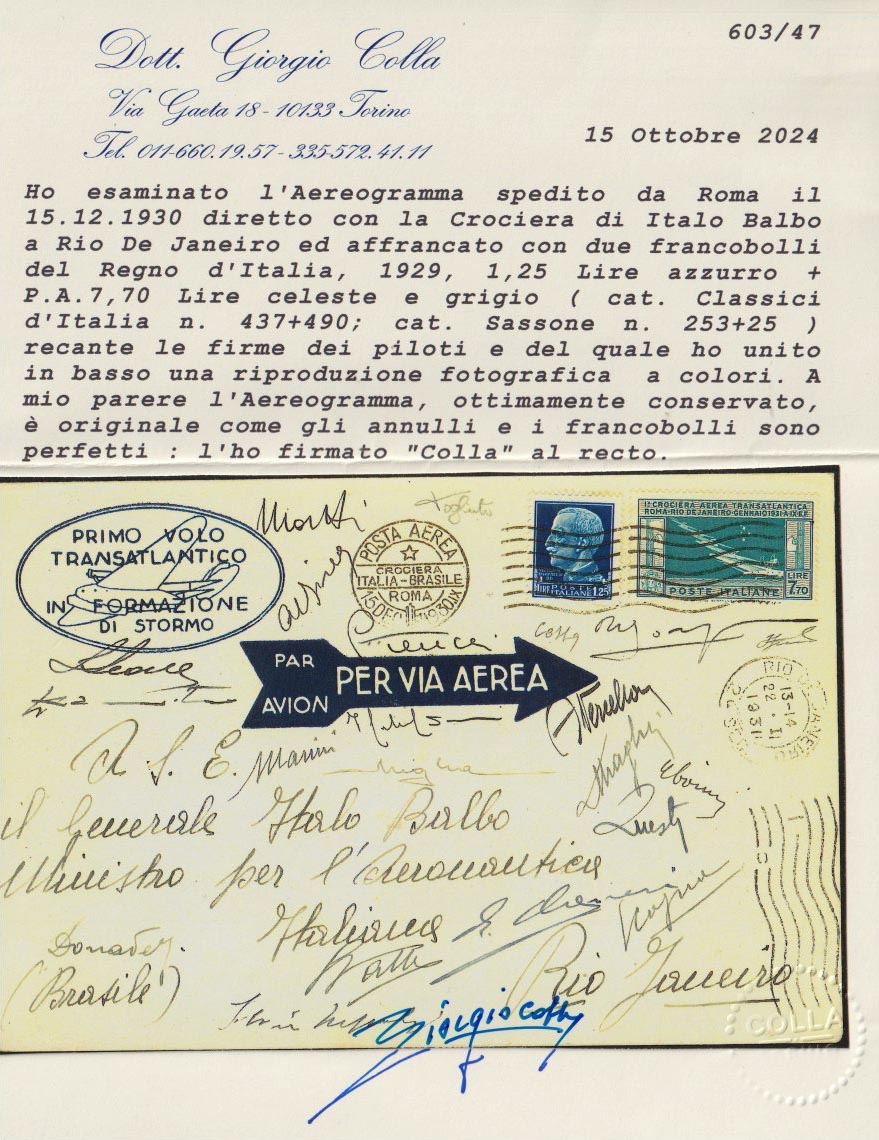 603/47
Dott. Giorgio Colla
Via Gaeta 18 - 10133 Torino
Tel. 011-660.19.57 - 335-572.41.11
15 Ottobre 2024
Ho esaminato l'Aereogramma spedito da Roma il
15.12.1930 diretto con la Crociera di Italo Balbo
a Rio De Janeiro ed affrancato con due francobolli
del Regno d'Italia, 1929, 1,25 Lire azzurro +
P.A.7,70 Lire celeste e grigio ( cat. Classici
d'Italia n. 437+490; cat. Sassone n. 253+25 )
recante le firme dei piloti e del quale ho unito
in basso una riproduzione fotografica a colori. A
mio parere l'Aereogramma, ottimamente conservato,
è originale come gli annulli e i francobolli sono
perfetti : l'ho firmato "Colla" al recto.
PRIMO VOLO
TRANSATLANTICO
IN FORMAZIONE
DI STORMO
POSTA AEREA
CROCIERA
ITALIA-BRASILE
ROMA
15 DEC 1930 IX
POSTE
ITALIANE
1.25
Iª CROCIERA AEREA TRANSATLANTICA
ROMA-RIO DE JANEIRO-GENNAIO 1931-A.IX E.F.
LIRE
7.70
POSTE ITALIANE
PAR
AVION
PER VIA AEREA
RIO DE JANEIRO
13-14
22.II
1931
Marini
A S. E.
il Generale Italo Balbo
Ministro per l'Aeronautica
Italiana
Rio Janeiro
(Brasile)
Donadelli
Questa
Giorgio Colla
COLLA